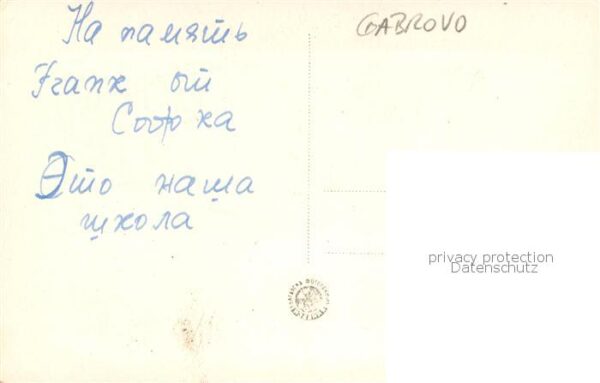 На память
GABROVO
Frank от
Софка
Это наша
школа
privacy protection
Datenschutz